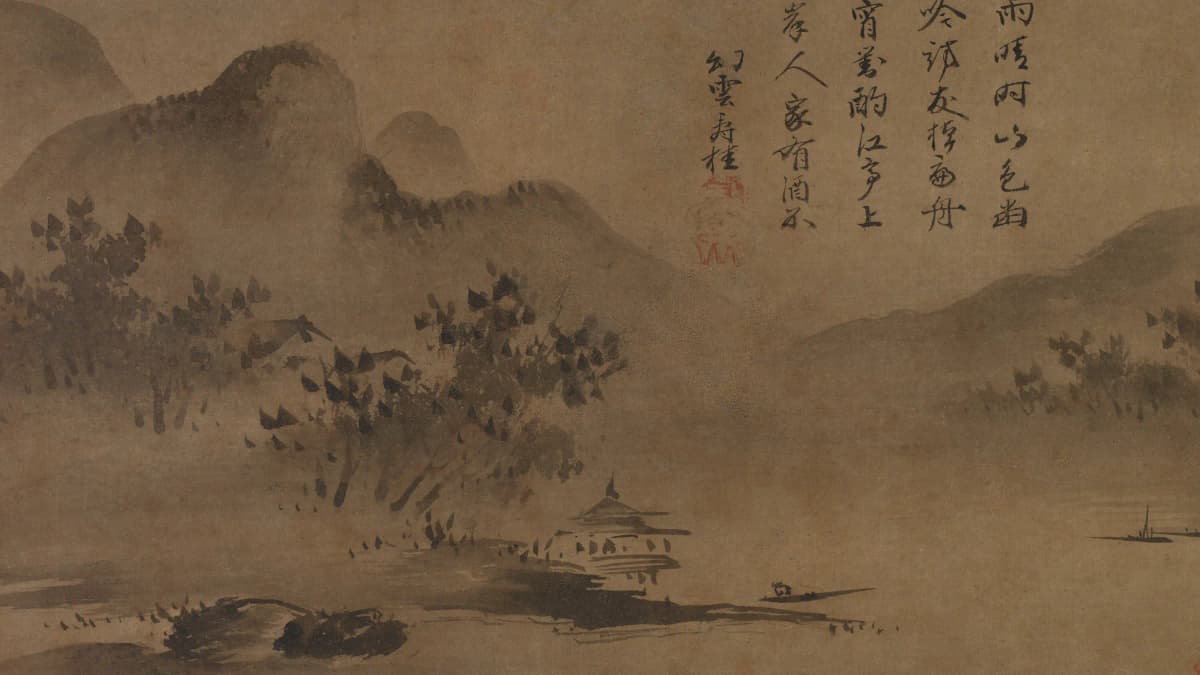 雨晴时山色幽
吟訪友棹扁舟
宵對酌江亭上
峯人家有酒不
幻雲壽桂